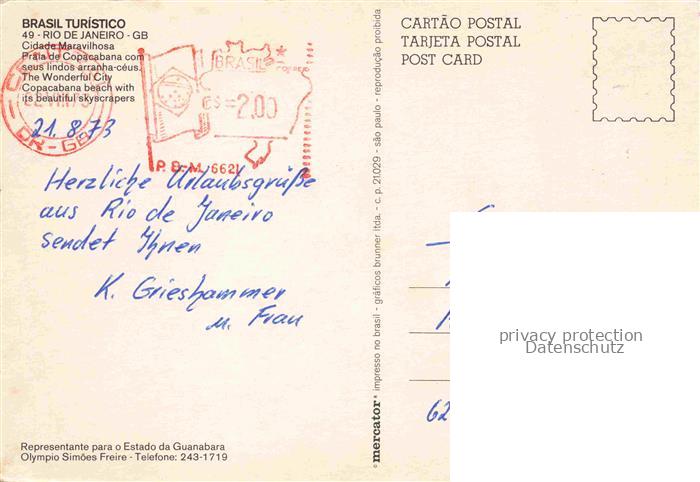 BRASIL TURÍSTICO
49 - RIO DE JANEIRO - GB
Cidade Maravilhosa
Praia de Copacabana com
seus lindos arranha-céus.
The Wonderful City
Copacabana beach with
its beautiful skyscrapers
BRASIL
CORREIO
2.00
DR-GB
P.B.M. 6621
21.8.73
Herzliche Urlaubsgrüße
aus Rio de Janeiro
sendet Ihnen
K. Grieshammer
u. Frau
Representante para o Estado da Guanabara
Olympio Simões Freire - Telefone: 243-1719
© mercator® impresso no brasil - gráficos brunner ltda. - c. p. 21029 - são paulo - reprodução proibida
CARTÃO POSTAL
TARJETA POSTAL
POST CARD
privacy protection
Datenschutz
62